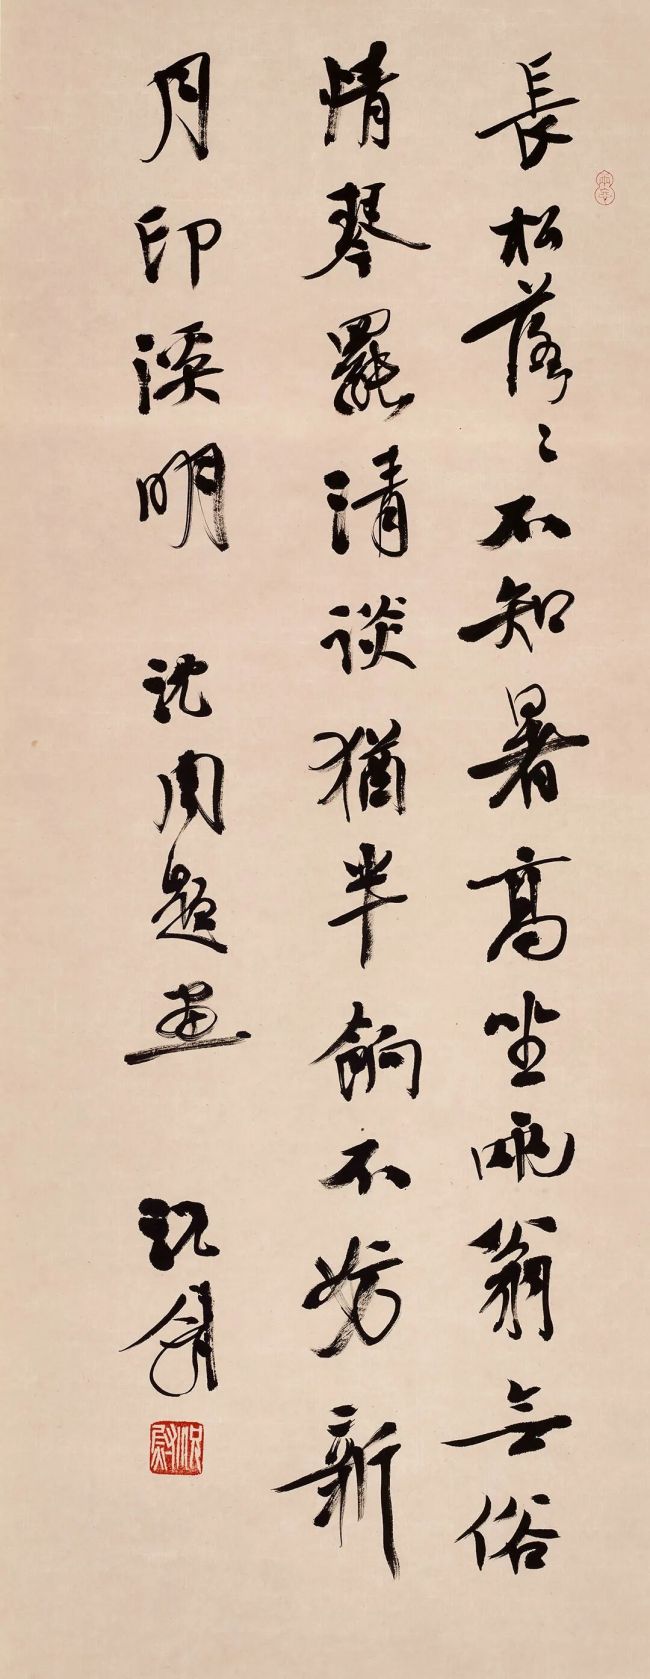 長松落〻不知暑高坐兩翁無俗
情琴罷清談猶半餉不妨新
月印溪明 沈周題畫 沈尹